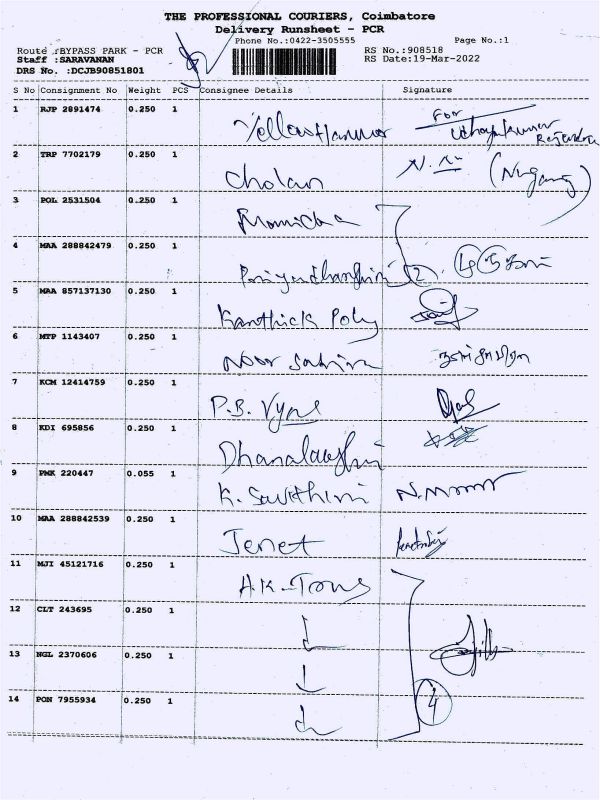 THE PROFESSIONAL COURIERS, Coimbatore
Delivery Runsheet - PCR
Phone No.:0422-3505555 Page No.:1
Route :BYPASS PARK - PCR RS No.:908518
Staff :SARAVANAN RS Date:19-Mar-2022
DRS No. :DCJB90851801
S No Consignment No Weight PCS Consignee Details Signature
1 RJP 2891474 0.250 1 Yellow Hammer For
2 TRP 7702179 0.250 1 Cholan
3 POL 2531504 0.250 1
4 MAA 288842479 0.250 1 2
5 MAA 857137130 0.250 1 Karthick Poly
6 MTP 1143407 0.250 1 Noor
7 KCM 12414759 0.250 1 P.B. Vyas
8 KDI 695856 0.250 1
9 PMK 220447 0.055 1 K.
10 MAA 288842539 0.250 1 Jenet
11 MJI 45121716 0.250 1 H.K.
12 CLT 243695 0.250 1
13 NGL 2370606 0.250 1
14 PON 7955934 0.250 1 4